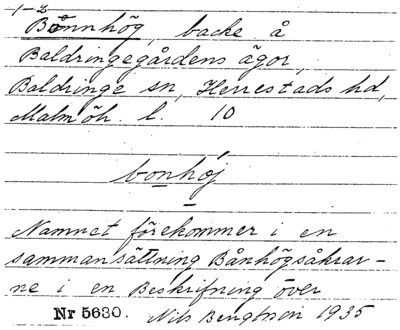 1-3
Bånnhög, backe å
Baldringegårdens ägor,
Baldringe sn, Herrestads hd,
Malmöh. l. 10
bonhöj
Namnet förekommer i en
sammansättning Bånhögsåkrar-
ne i en Beskrifning över
Nr 5630. Nils Bengtson 1935